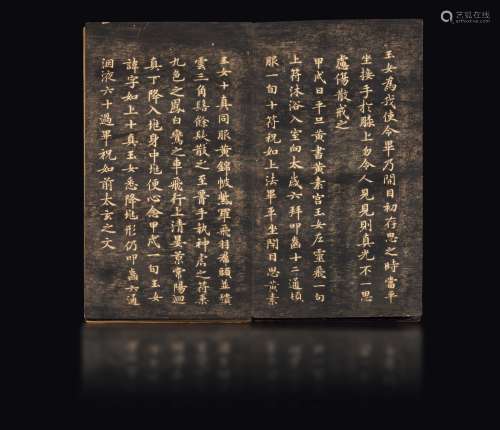 玉女為我使令畢乃開目初存思之時當平
坐接手於膝上勿令人見見則真光不一思
慮傷散戒之
甲戌日平旦黃書黃素宮玉女左靈飛一旬
上符沐浴入室向太歲六拜叩齒十二通頓
服一旬十符祝如上法畢平坐閉目思黃素
玉女十真同服黃錦帔紫羅飛羽裙頭並頹
雲三角髻餘髮散之至腰手執神虎之符乘
九色之鳳白鸞之車飛行上清晏景常陽迴
真下降入兆身中兆便心念甲戌一旬玉女
諱字如上十真玉女悉降兆形仍叩齒六通
咽液六十過畢祝如前太玄之文
艺狐在线
artfoxlive.com